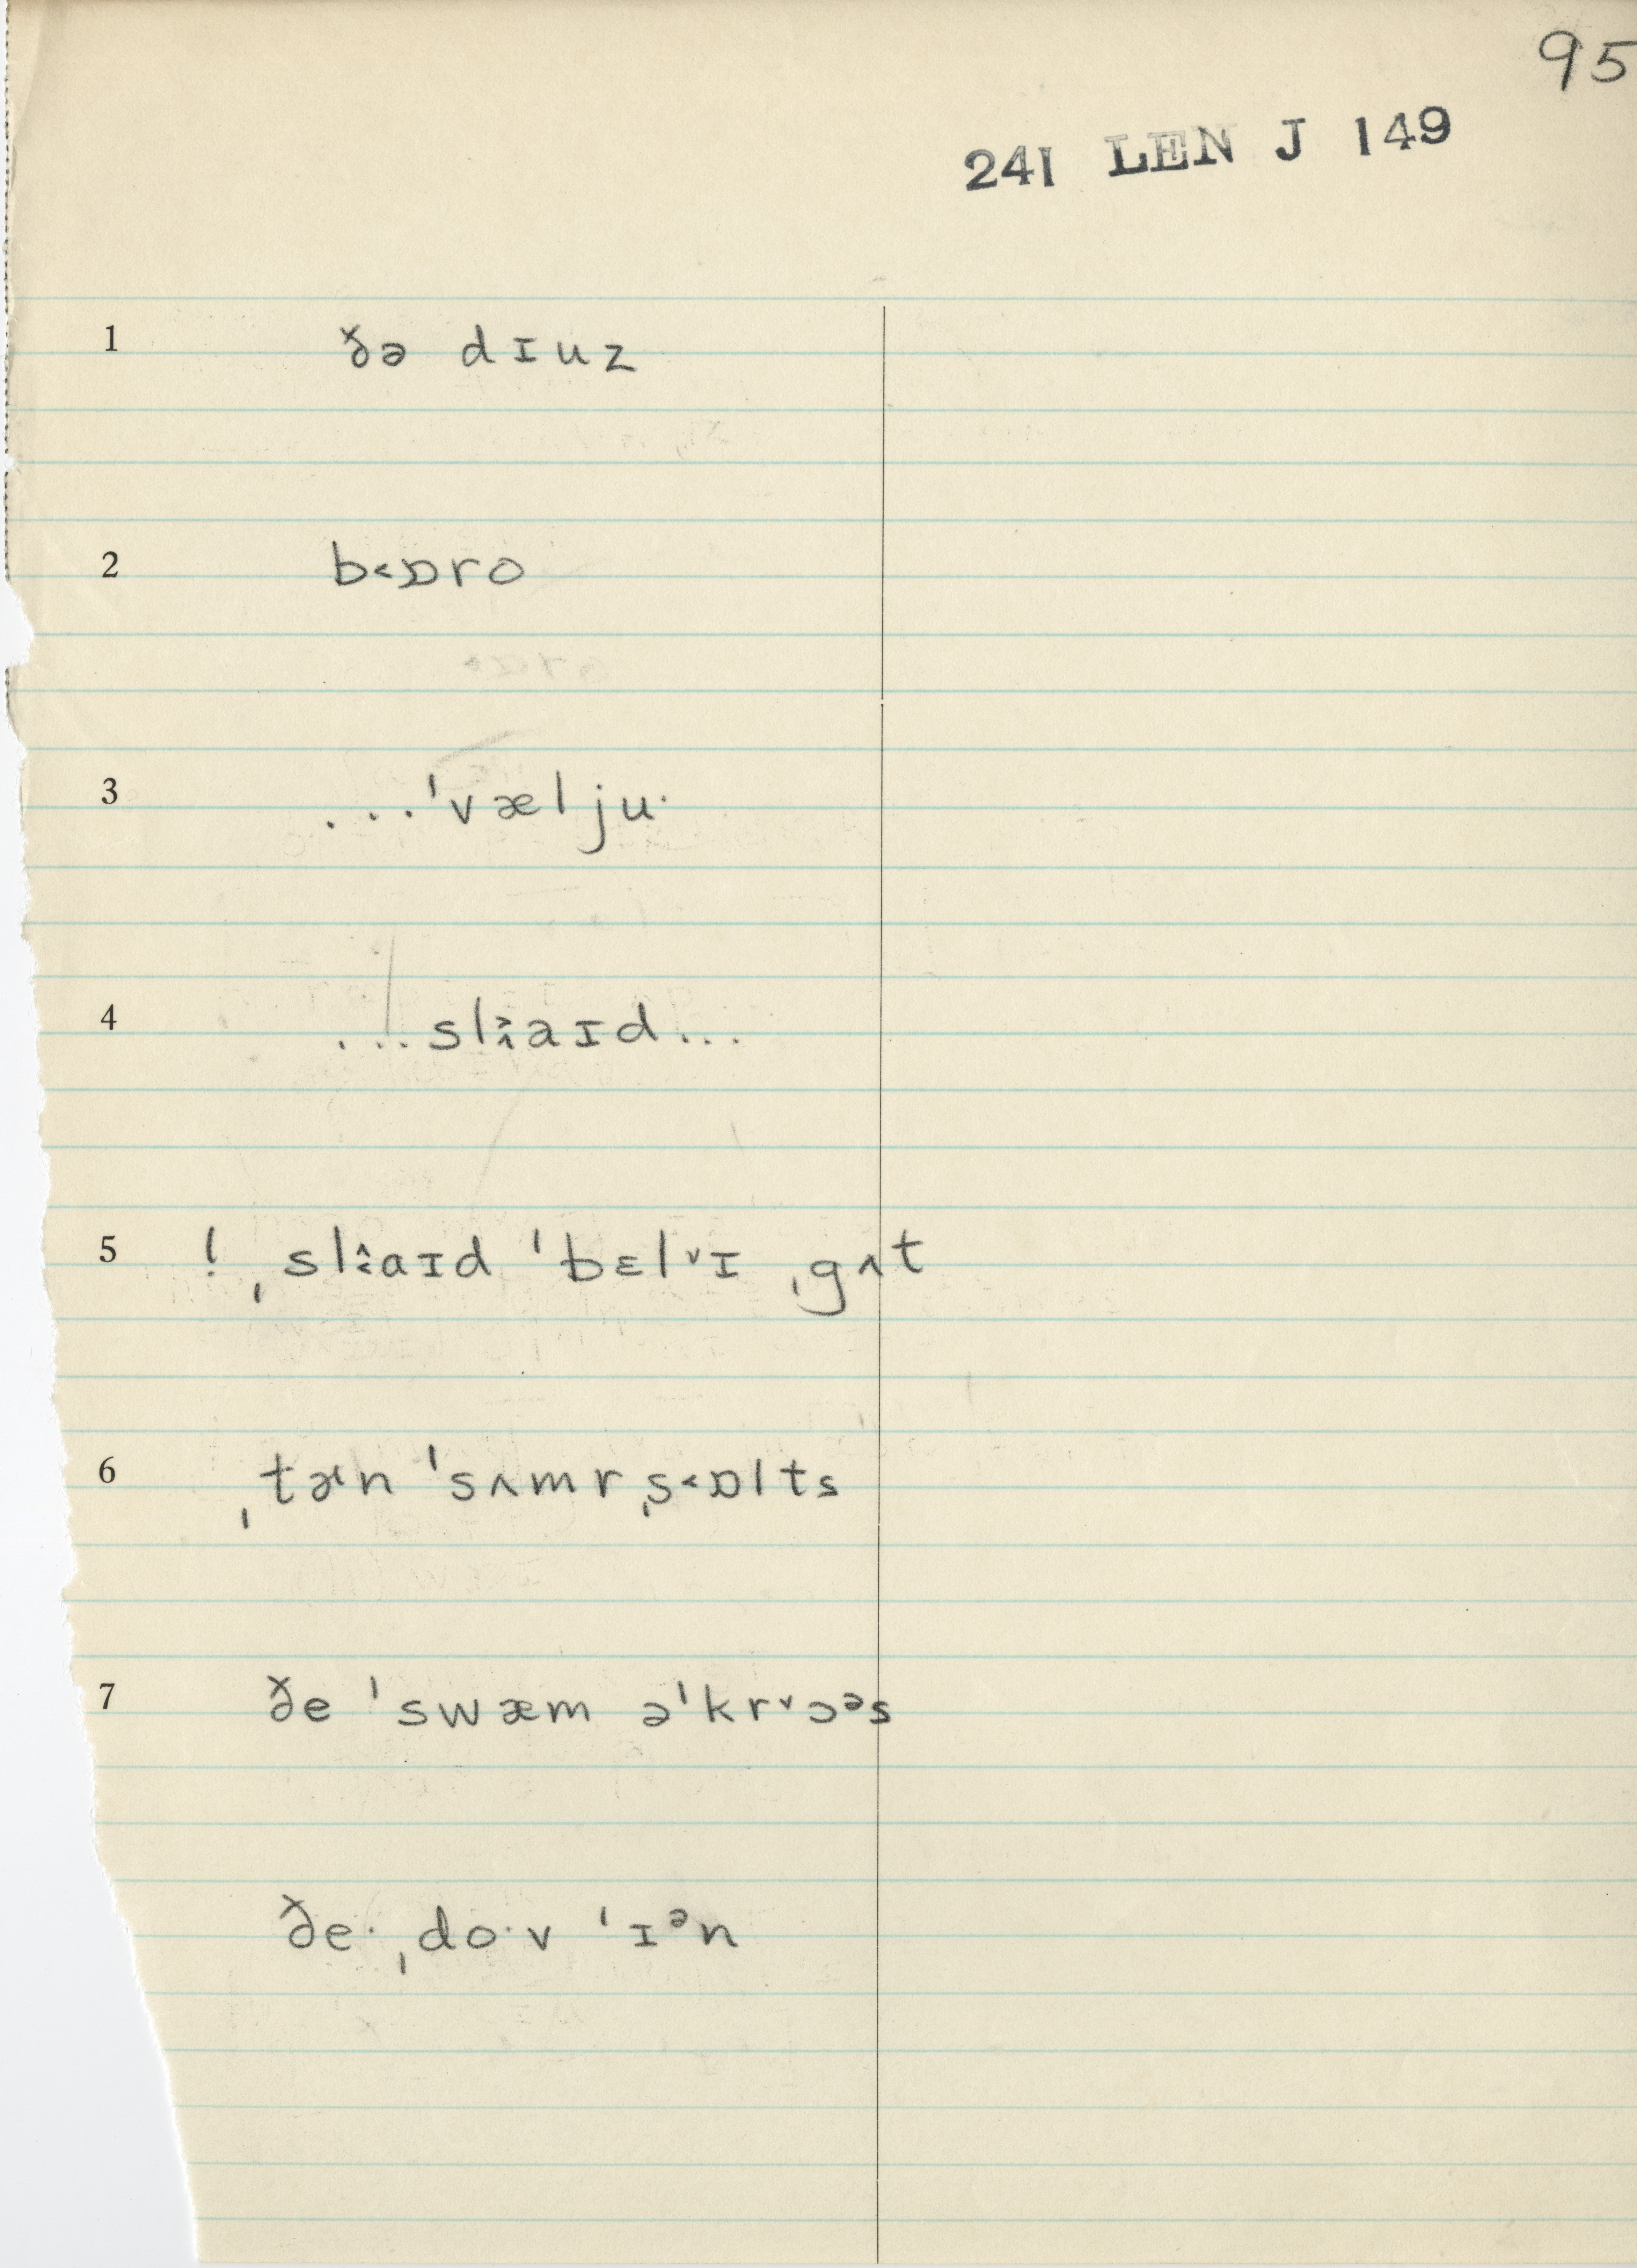 95
241 LEN J 149
1 ðə dɪuz
2 b˂ɒro
3 ...ˈvæljuˑ
4 ...slꜛaɪd...
5 ! ˌslaɪd ˈbɛl˅ɪ ˌgʌt
6 ˌtɚn ˈsʌmrˌs˂ɒlts
7 ðe ˈswæm əˈkr˅ɔᵊs
ðeˑ ˌdoˑv ˈɪᵊn